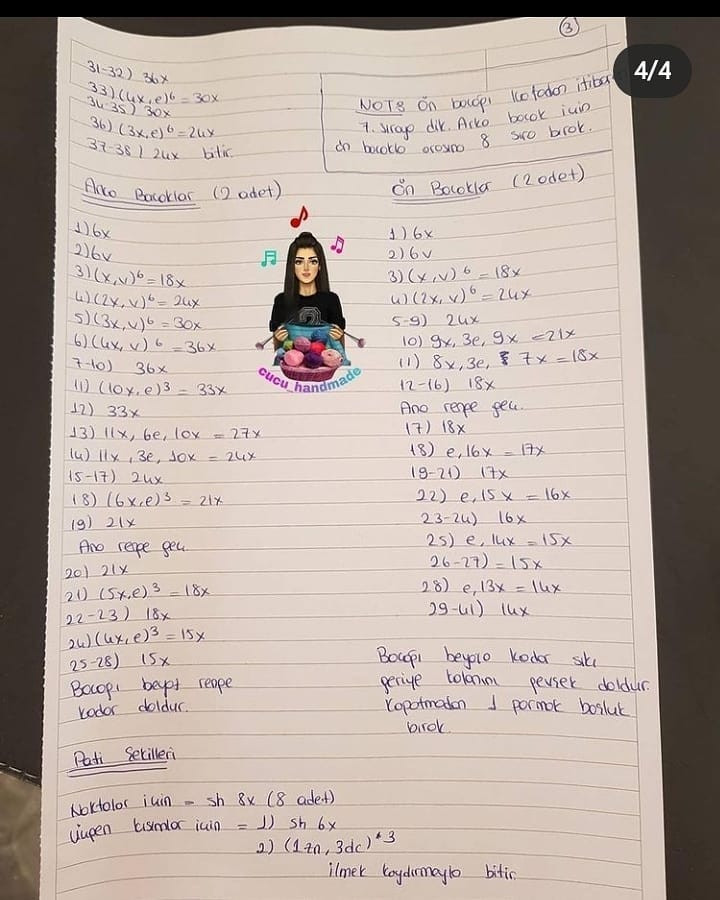 3
4/4
31-32) 36x
33) (4x, e)6 = 30x
34-35) 30x
36) (3x, e)6 = 24x
37-38) 24x bitir.
NOT8 Ön bacağı kafadan itibaren
7. sıraya dik. Arka bacak için
ön bacakla arasına 8 sıra bırak.
Arka Bacaklar (2 adet)
1) 6x
2) 6v
3) (x, v)6 = 18x
4) (2x, v)6 = 24x
5) (3x, v)6 = 30x
6) (4x, v)6 = 36x
7-10) 36x
11) (10x, e)3 = 33x
12) 33x
13) 11x, 6e, 10x = 27x
14) 11x, 3e, 10x = 24x
15-17) 24x
18) (6x, e)3 = 21x
19) 21x
Ana renge geç
20) 21x
21) (5x, e)3 = 18x
22-23) 18x
24) (4x, e)3 = 15x
25-28) 15x
Bacağı beyaz renge
kadar doldur.
Ön Bacaklar (2 adet)
1) 6x
2) 6v
3) (x, v)6 = 18x
4) (2x, v)6 = 24x
5-9) 24x
10) 9x, 3e, 9x = 21x
11) 8x, 3e, 7x = 18x
12-16) 18x
Ana renge geç.
17) 18x
18) e, 16x = 17x
19-21) 17x
22) e, 15x = 16x
23-24) 16x
25) e, 14x = 15x
26-27) = 15x
28) e, 13x = 14x
29-41) 14x
Bacağı beyaza kadar sıkı
geriye kalanını gevşek doldur.
Kapatmadan 1 parmak boşluk
bırak.
cucu_handmade
Pati Şekilleri
Noktalar için = sh 8x (8 adet)
Üçgen kısımlar için = 1) sh 6x
2) (1zn, 3dc)*3
ilmek kaydırmayla bitir.